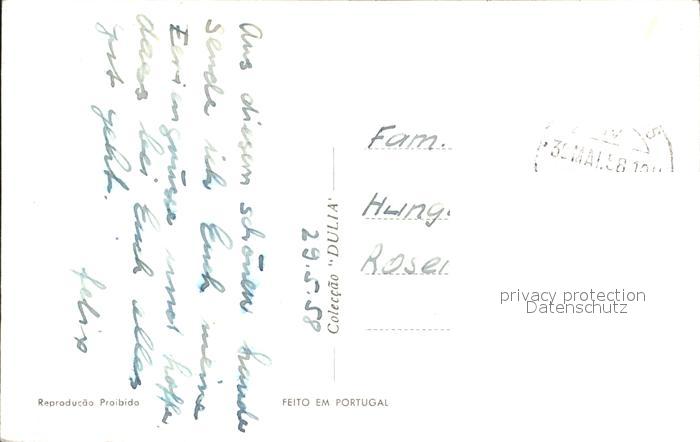 29.5.58
Aus diesem schönen Lande
sende ich Euch meine
Feriengrüsse und hoffe
dass bei Euch alles
gut geht.
Felix
Colecção "DULIA"
Fam.
Hung
Rosen
MAI.58
privacy protection
Datenschutz
Reprodução Proibida
FEITO EM PORTUGAL